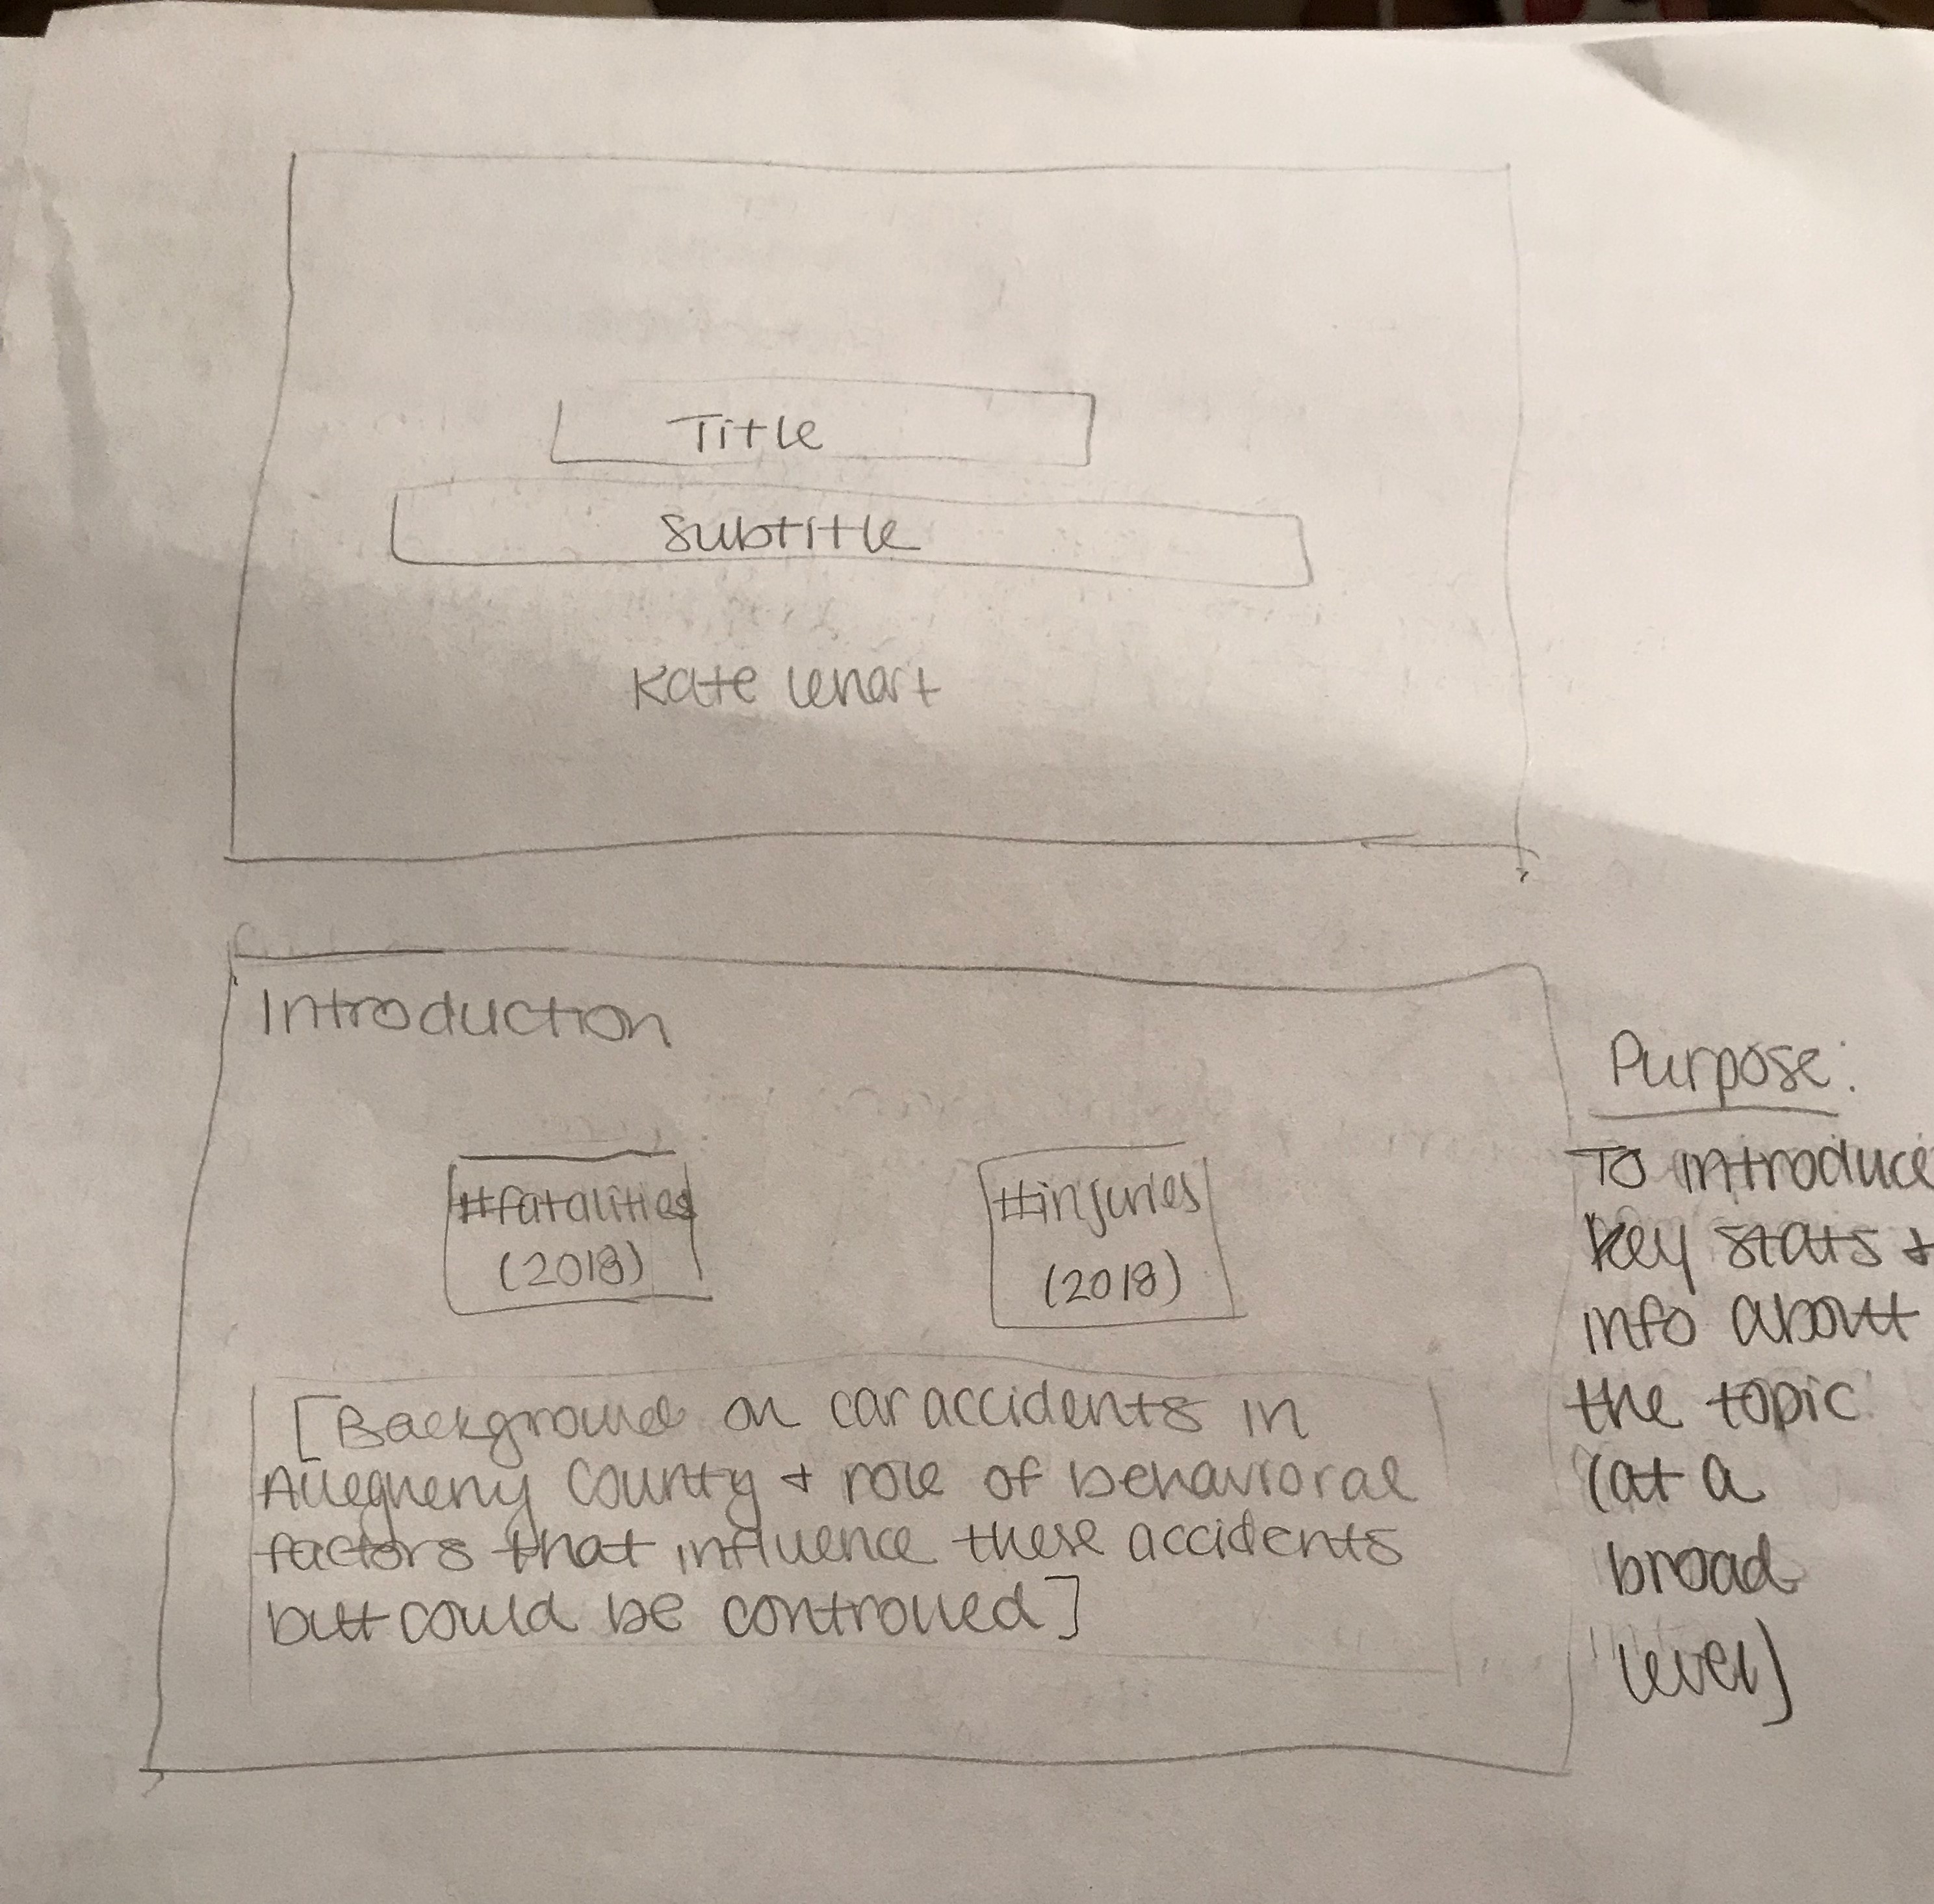 Title
Subtitle
Kate Lenart
Introduction
#fatalities
(2018)
#injuries
(2018)
[Background on car accidents in
Allegheny County + role of behavioral
factors that influence these accidents
but could be controlled]
Purpose:
To introduce
key stats +
info about
the topic
(at a
broad
level)